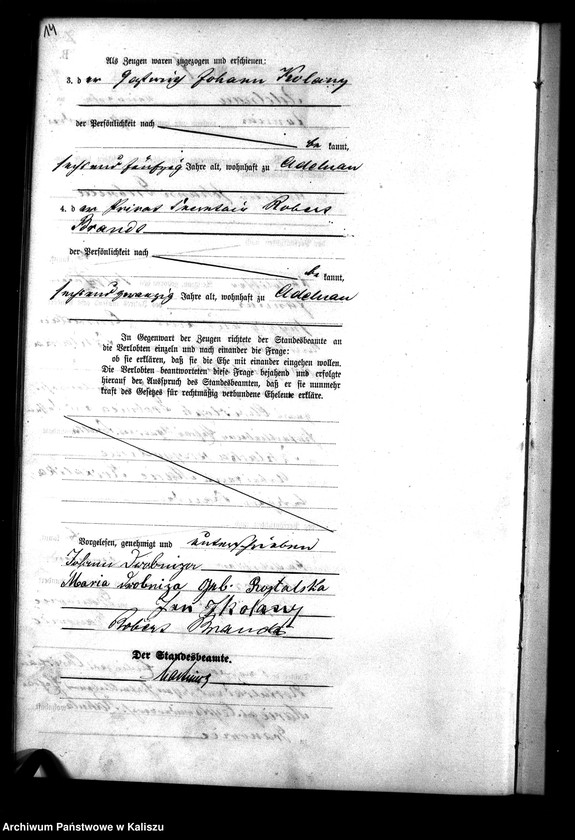 14
Als Zeugen waren zugezogen und erschienen:
3. der Gastwirth Johann Kolany
der Persönlichkeit nach
be kannt,
sechs und fünfzig Jahre alt, wohnhaft zu Adelnau
4. der Privat Secretair Robert
Brandt
der Persönlichkeit nach
be kannt,
sechs und zwanzig Jahre alt, wohnhaft zu Adelnau
In Gegenwart der Zeugen richtete der Standesbeamte an
die Verlobten einzeln und nach einander die Frage:
ob sie erklären, daß sie die Ehe mit einander eingehen wollen.
Die Verlobten beantworteten diese Frage bejahend und erfolgte
hierauf der Ausspruch des Standesbeamten, daß er sie nunmehr
kraft des Gesetzes für rechtmäßig verbundene Eheleute erkläre.
Vorgelesen, genehmigt und unterschrieben
Johann Drobniza
Maria Drobniza geb.
Jan Kolany
Robert Brandt
Der Standesbeamte.
Archiwum Państwowe w Kaliszu